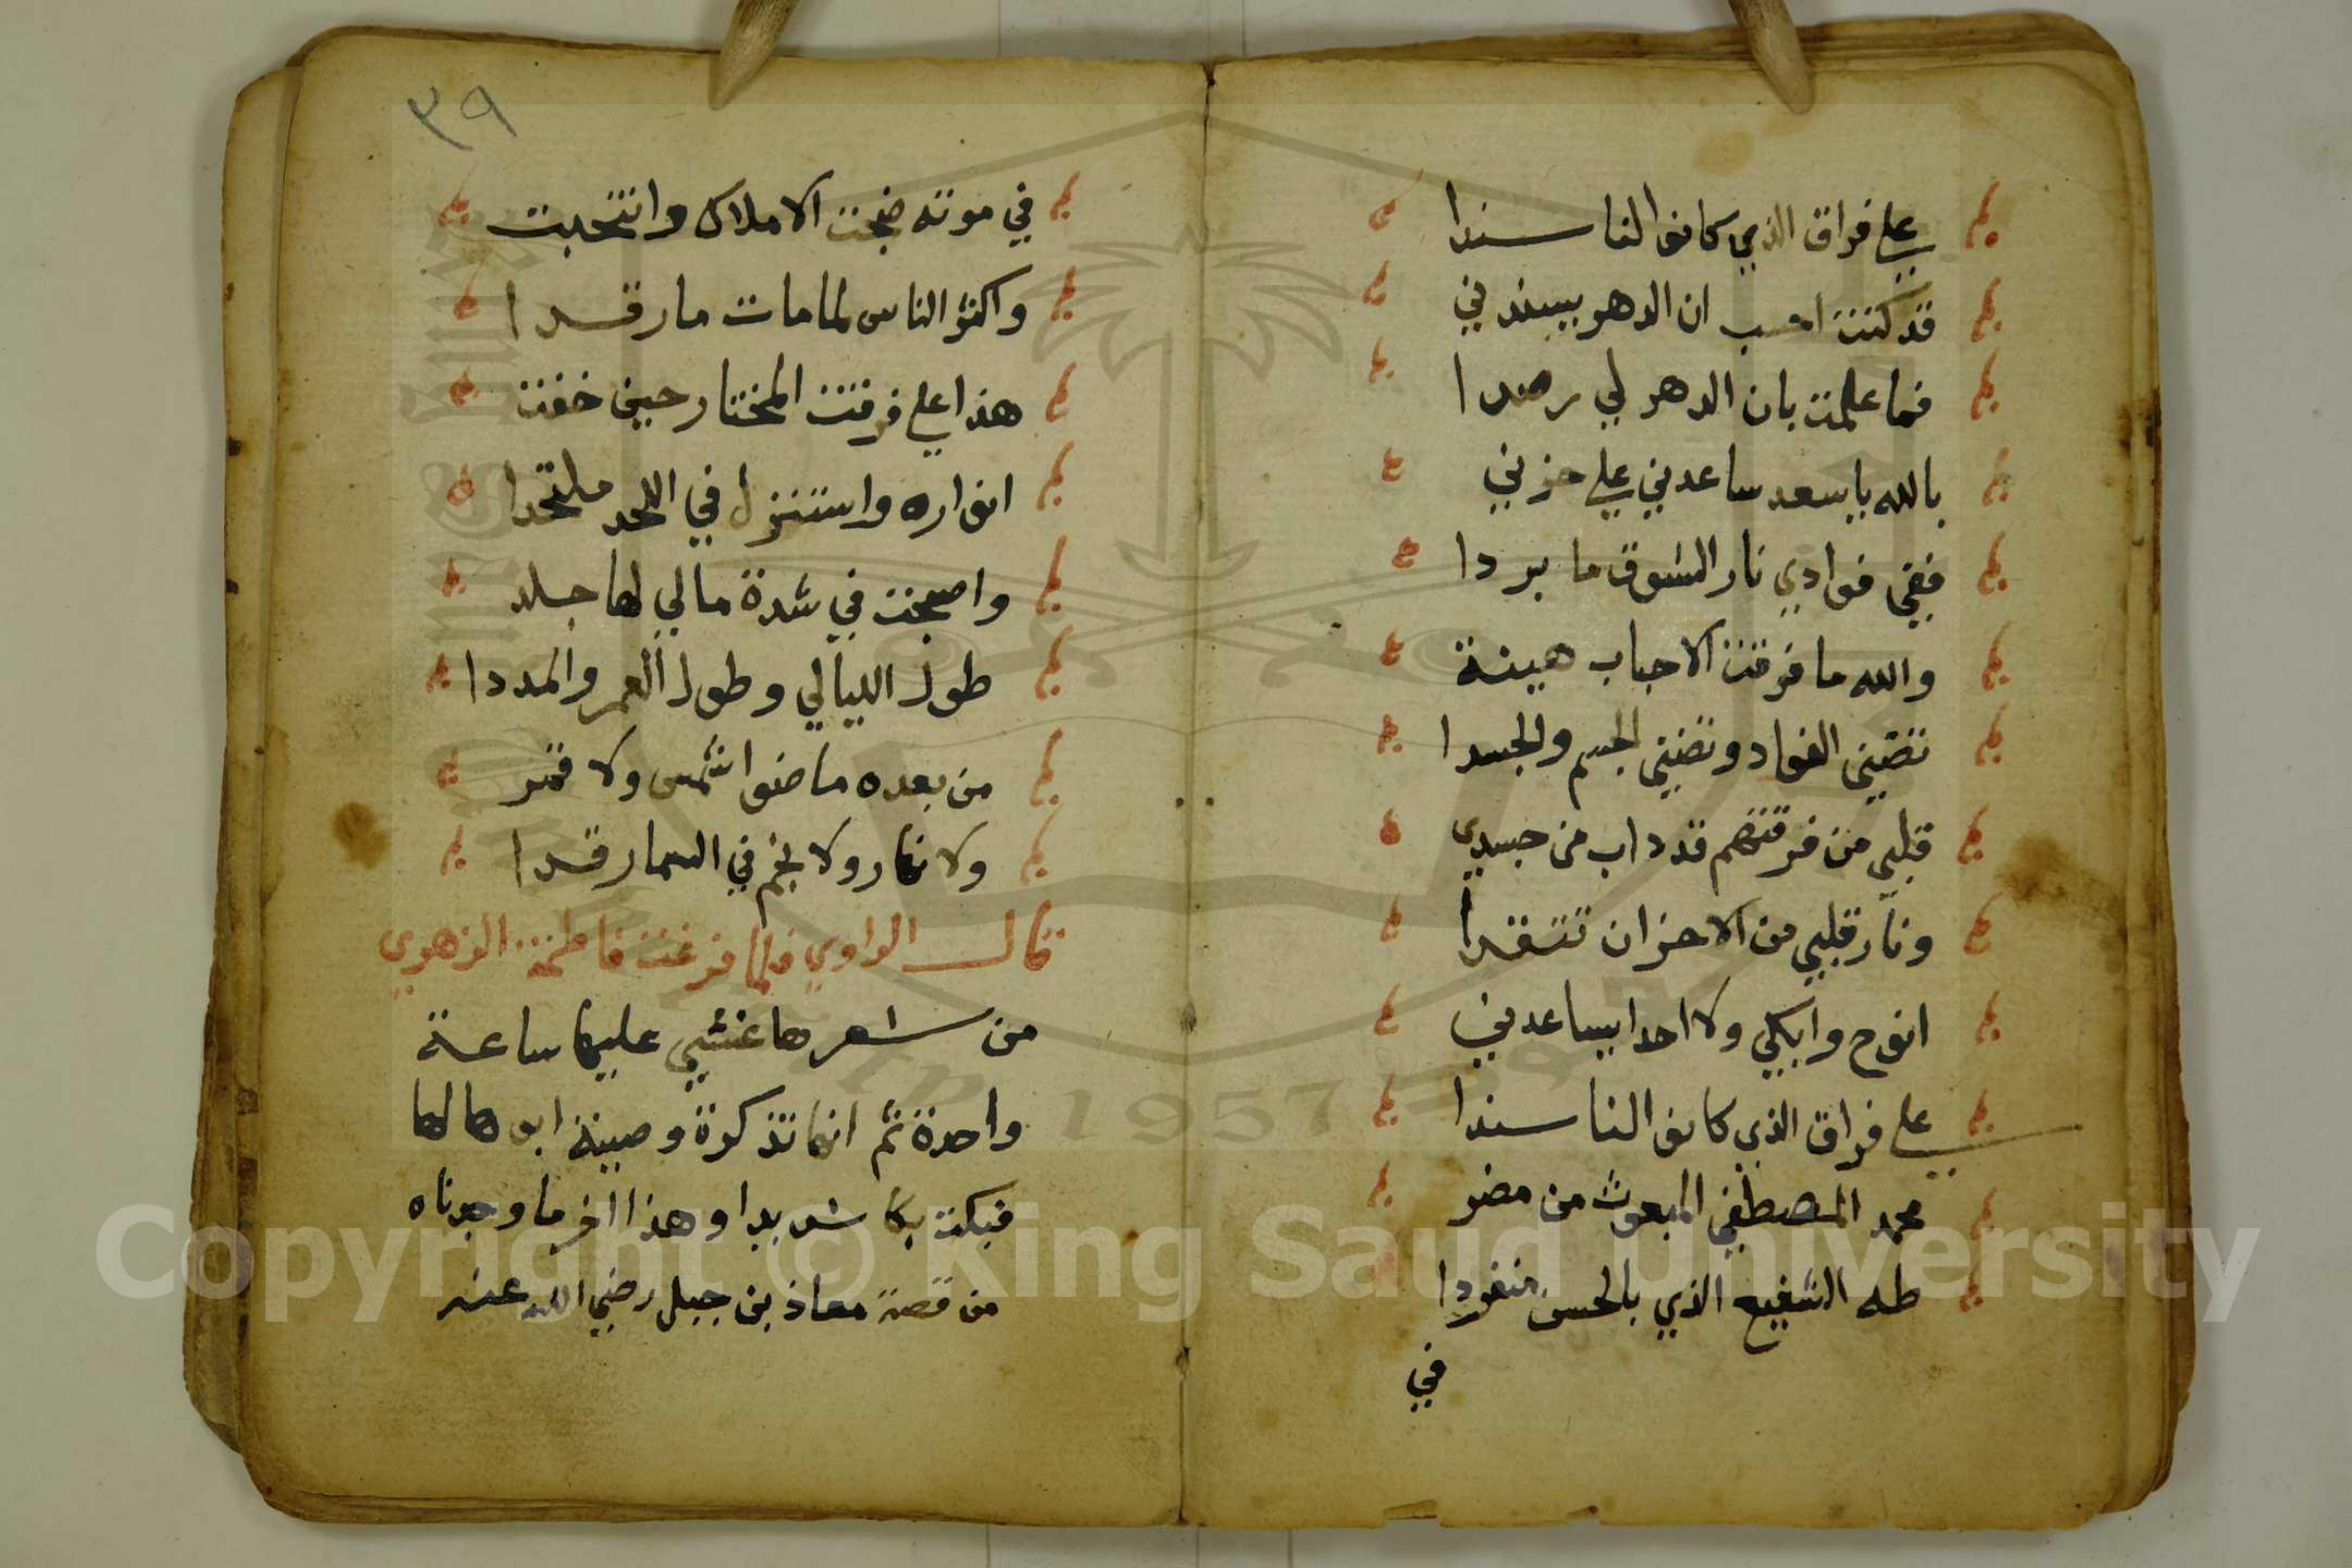 على فراق الذي كانوا لنا سندا
قد كنت احسب ان الدهر يسندني
فما علمت بان الدهر لي رصدا
بالله يا سعد ساعدني علي حزني
ففي فوادي نار الشوق ما بردا
والله ما فرقت الاحباب هينة
تضني الفواد وتضني الجسم والجسدا
قلبي من فرقتهم قد داب من جسدي
ونار قلبي من الاحزان تتقدا
انوح وابكي ولا احدا يساعدني
علي فراق الذي كانوا لنا سندا
محمد المصطفي المبعوث من مضر
طه الشفيع الذي بالحسن منفردا
في
٣٩
في موته ضجت الاملاك وانتحبت
واكثر الناس لما مات ما رقدا
هذا علي فرقت المختار حين خفت
انواره واستنزل في اللحد ملتحدا
واصبحت في شدة مالي لها جلد
طول الليالي وطول العمر والمددا
من بعده ما ضوا شمس ولا قمر
ولا نهار ولا نجم في السما رقدا
قال الراوي فلما فرغت فاطمة الزهري
من شعرها غشي عليها ساعة
واحدة ثم انها تذكرة وصية ابوها لها
فبكت بكا شديدا وهذا اخر ما وجدناه
من قصة معاذ بن جبل رضي الله عنه
1957
Copyright © King Saud University